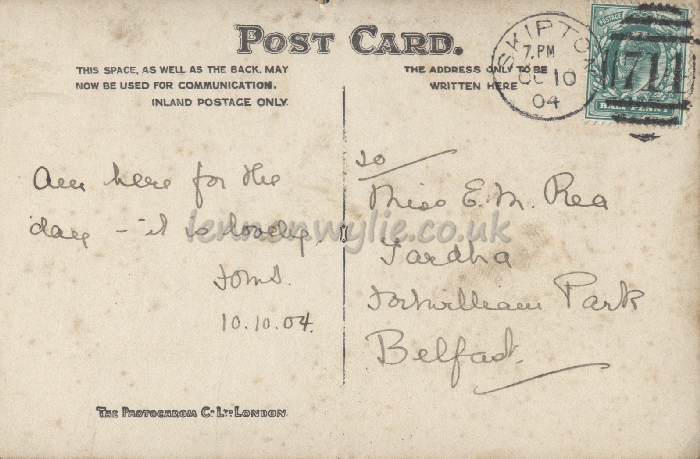 POST CARD.
THIS SPACE, AS WELL AS THE BACK, MAY
NOW BE USED FOR COMMUNICATION.
INLAND POSTAGE ONLY.
THE ADDRESS ONLY TO BE
WRITTEN HERE
SKIPTON
7. PM
OC 10
04
POSTAGE
711
HALF PENNY
Am here for the
day - it is lovely.
10.10.04.
to
Miss E. M. Rea
Tardha
Fortwilliam Park
Belfast.
lennonwylie.co.uk
THE PHOTOCHROM Co. LTD. LONDON.